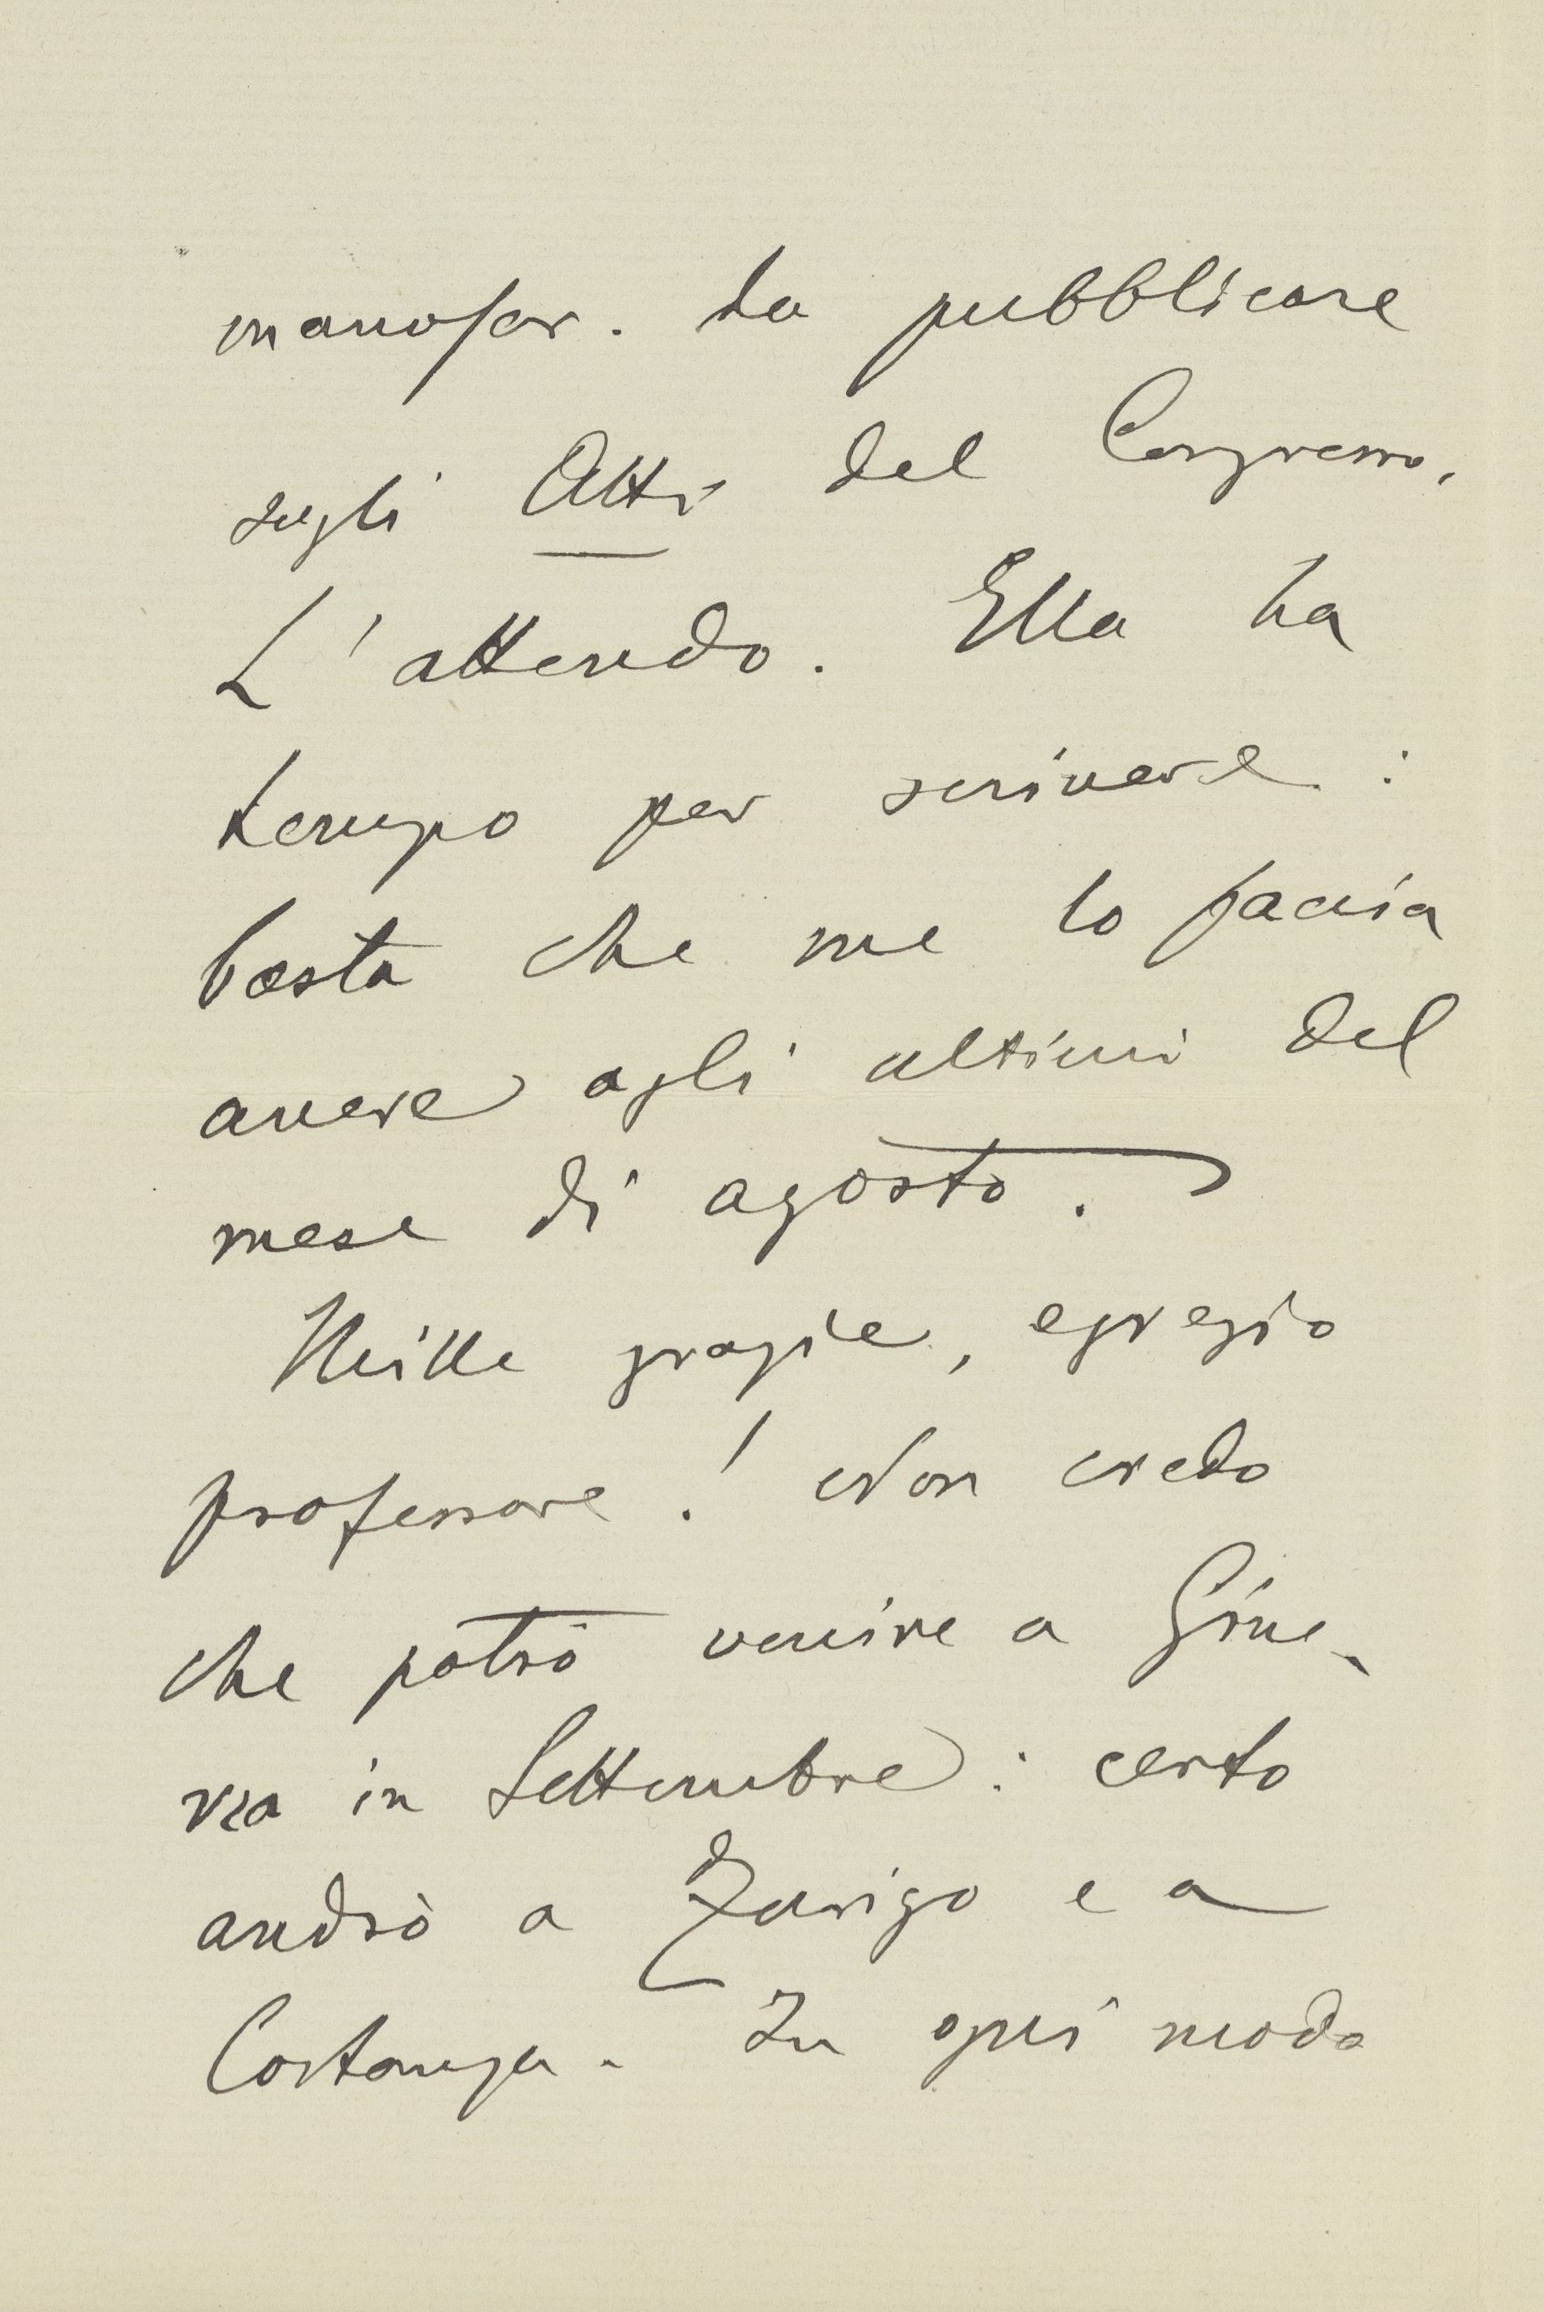 manoscr. da pubblicare
sugli Atti del Congresso.
L'attendo. Ella ha
tempo per scrivere:
basta che me lo faccia
avere agli ultimi del
mese di agosto.
Mille grazie, egregio
professore! Non credo
che potrò venire a Gine-
vra in Settembre: certo
andrò a Zurigo e a
Costanza. In ogni modo